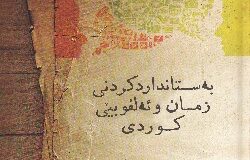 بەستانداردکردنی
زمان و ئەلفوبێی
کوردی